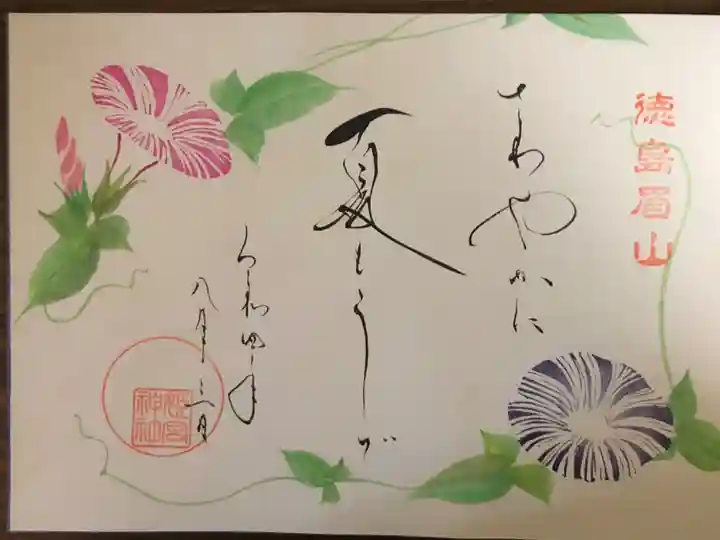 徳島眉山
さわやかに
夏もうで
令和四年
八月三日
姫宮神社